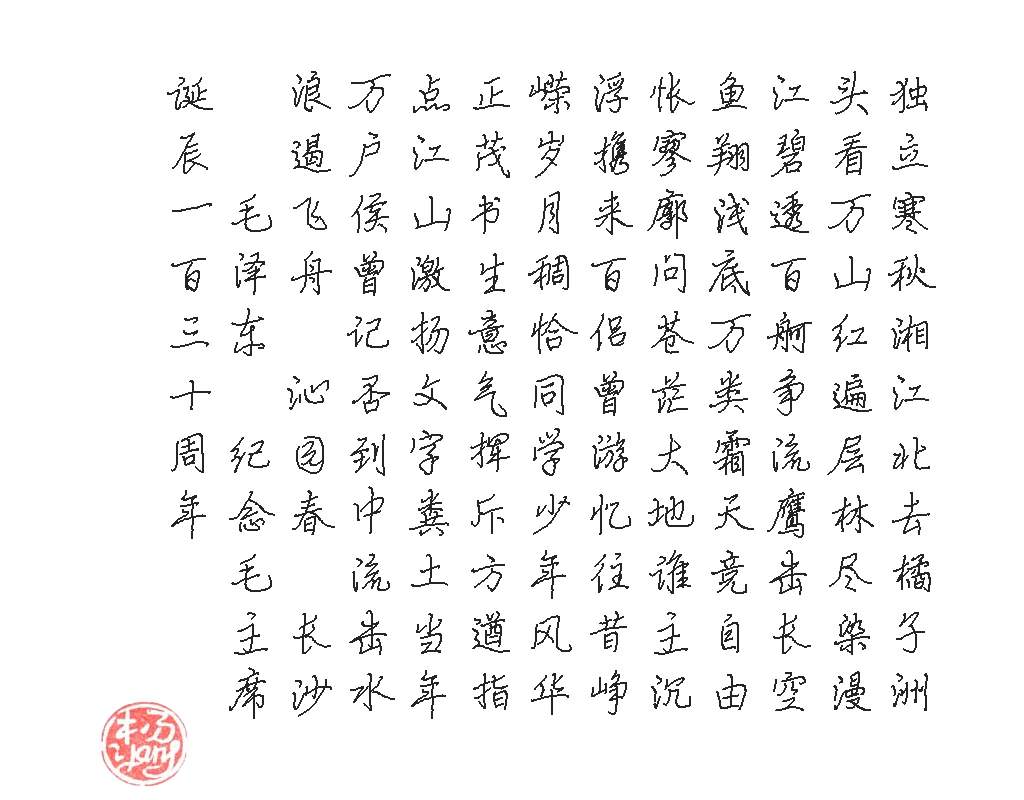 独立寒秋湘江北去橘子洲
头看万山红遍层林尽染漫
江碧透百舸争流鹰击长空
鱼翔浅底万类霜天竞自由
怅寥廓问苍茫大地谁主沉
浮携来百侣曾游忆往昔峥
嵘岁月稠恰同学少年风华
正茂书生意气挥斥方遒指
点江山激扬文字粪土当年
万户侯曾记否到中流击水
浪遏飞舟 沁园春 长沙
毛泽东 纪念毛主席
诞辰一百三十周年
杨